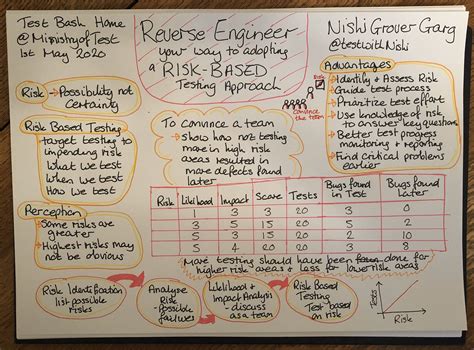 Test Bash Home
@MinistryofTest
1st May 2020
Reverse Engineer
your way to adopting
a RISK-BASED
Testing Approach
Nishi Grover Garg
@testwithNishi
Risk → Possibility not
Certainty
Risk Based Testing
target testing to
impending risk
What we test
When we test
How we test
Perception
→ Some risks are
greater
→ Highest risks may
not be obvious
To convince a team
→ Show how not testing
more in high risk
areas resulted in
more defects found
later
Risk
Convince
the team
Advantages
→ Identify + Assess Risk
→ Guide test process
→ Prioritize test effort
→ Use knowledge of risk
to answer key questions
→ Better test progress
monitoring + reporting
→ Find critical problems
earlier
Risk Likelihood Impact Score Tests Bugs found in Test Bugs found Later
1 3 3 20 3 0
3 5 15 20 5 2
5 3 15 20 2 3
5 4 20 20 3 8
More testing should have been done for
higher risk areas + less for low risk areas
Risk Identification
list possible
risks
Analyse
Risk
- possible
failures
Likelihood +
Impact Analysis
- discuss
as a team
Risk Based
Testing
Test based
on risk
Tests
Risk